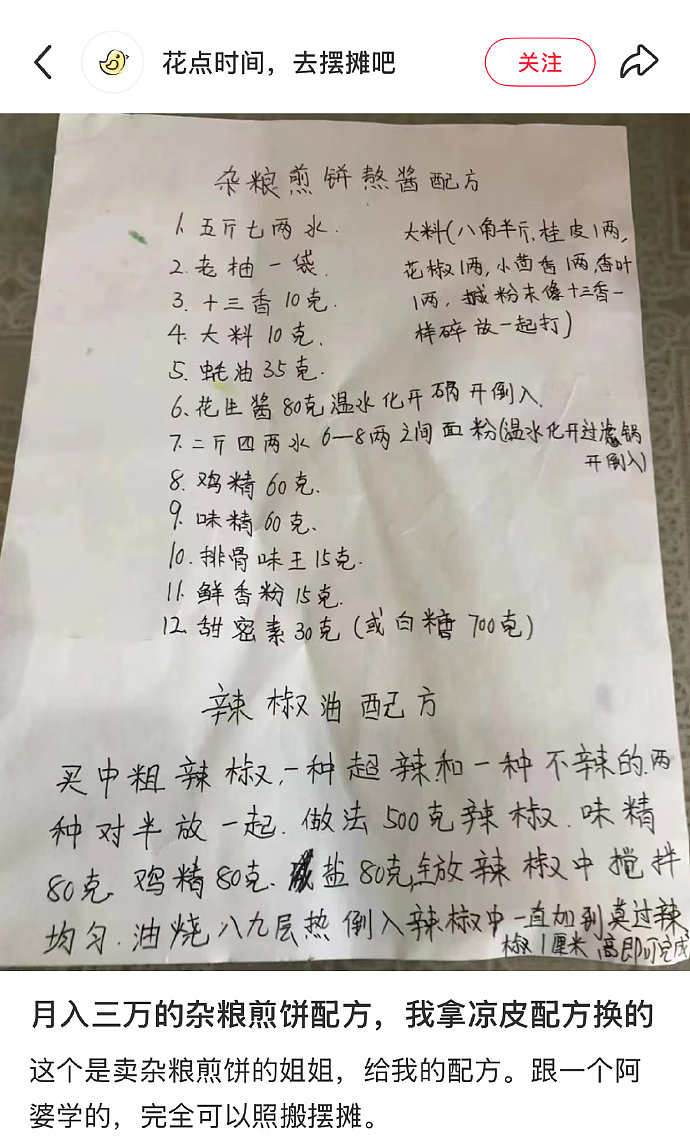 花点时间，去摆摊吧
关注
杂粮煎饼熬酱配方
1. 五斤七两水.
2. 老抽一袋.
3. 十三香10克.
4. 大料10克.
5. 蚝油35克.
6. 花生酱80克温水化开锅开倒入.
7. 二斤四两水6—8两之间面粉(温水化开过滤锅
开倒入)
8. 鸡精60克.
9. 味精60克.
10. 排骨味王15克.
11. 鲜香粉15克.
12. 甜蜜素30克(或白糖700克)
大料(八角半斤,桂皮1两,
花椒1两,小茴香1两,香叶
1两,粉末像十三香一
样碎放一起打)
辣椒油配方
买中粗辣椒,一种超辣和一种不辣的.两
种对半放一起.做法500克辣椒.味精
80克.鸡精80克.盐80克,全放辣椒中搅拌
均匀.油烧八九层热倒入辣椒中一直加到莫过辣
椒1厘米高即可完成
月入三万的杂粮煎饼配方，我拿凉皮配方换的
这个是卖杂粮煎饼的姐姐，给我的配方。跟一个阿
婆学的，完全可以照搬摆摊。